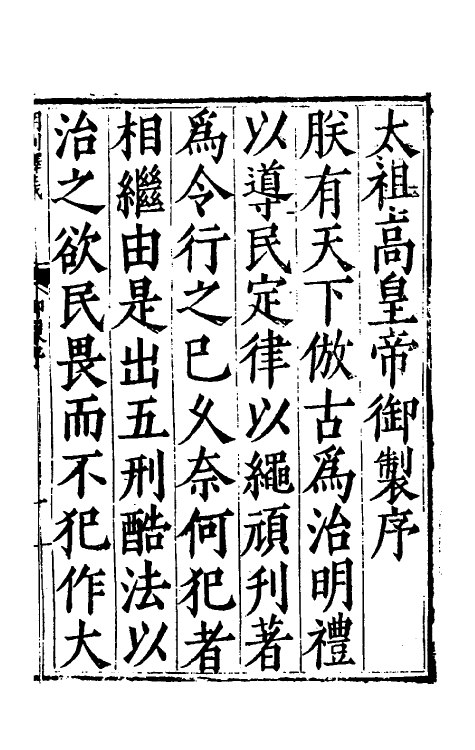 太祖高皇帝御製序
朕有天下倣古爲治明禮
以導民定律以繩頑刋著
爲令行之已乆奈何犯者
相繼由是出五刑酷法以
治之欲民畏而不犯作大